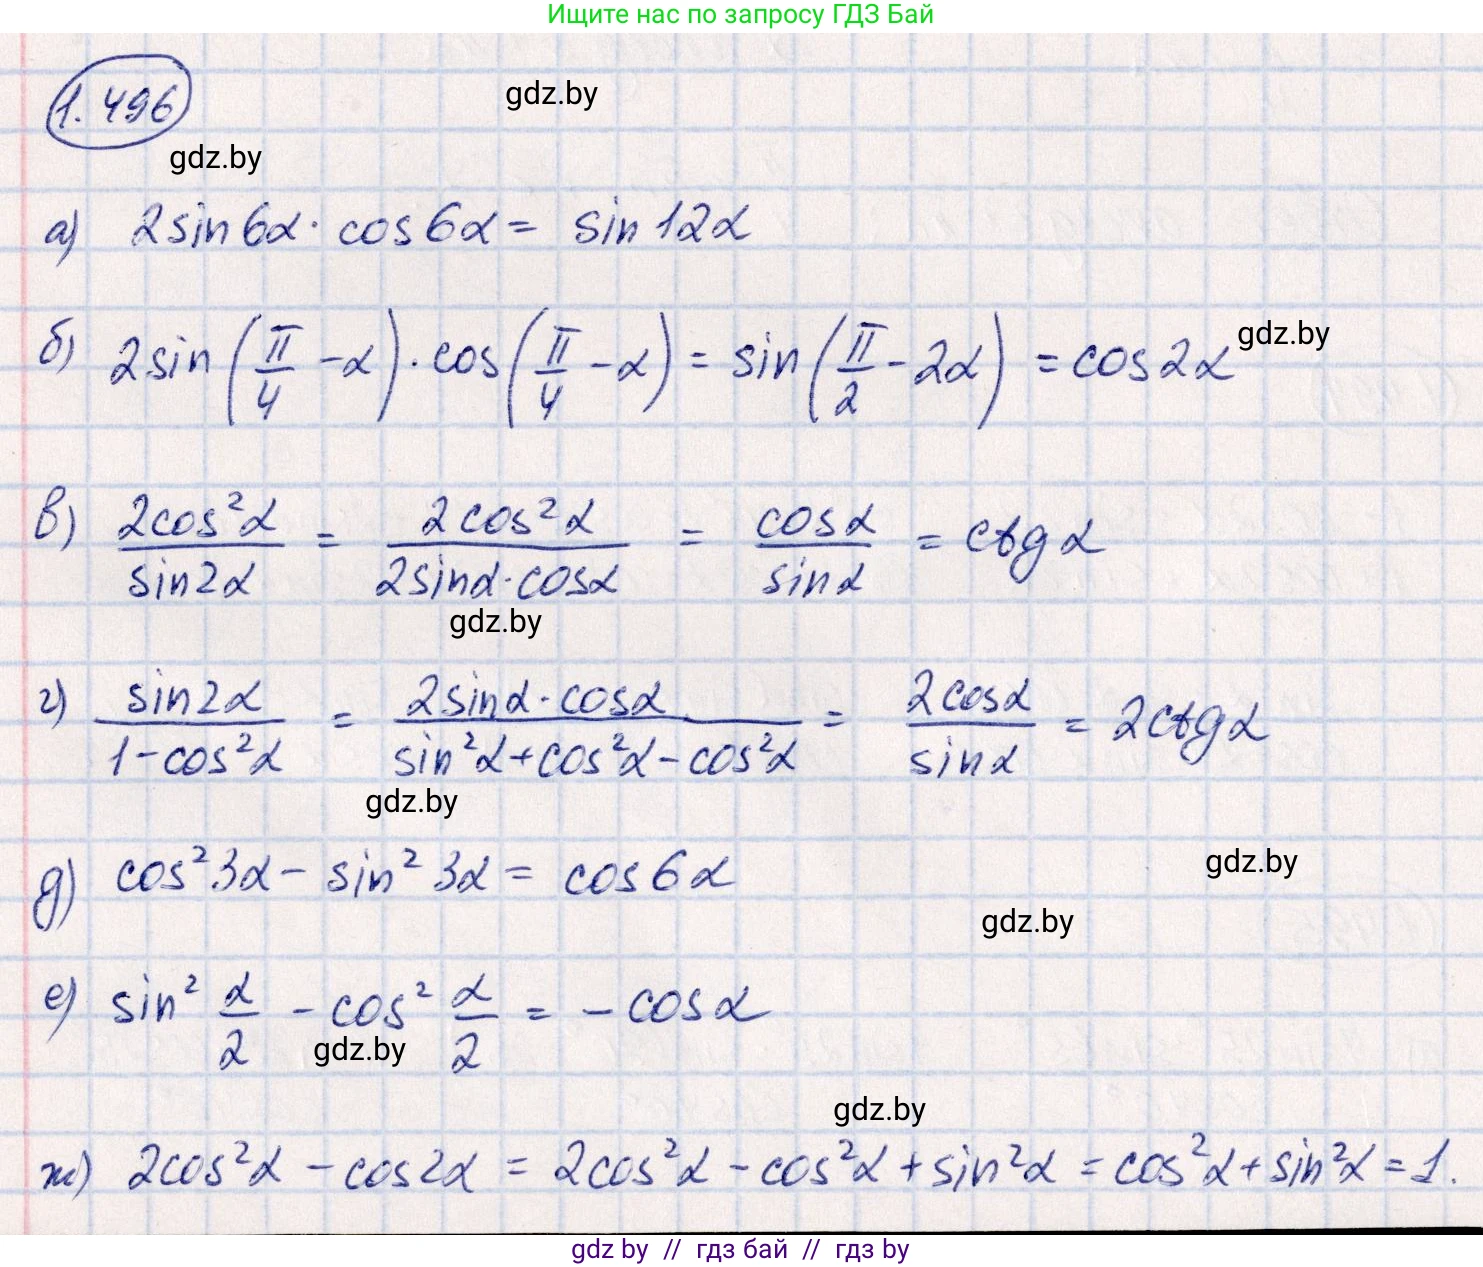 Ищите нас по запросу ГДЗ Бай
1.496
gdz.by
gdz.by
а) 2sin6α · cos6α = sin12α
б) 2sin(π/4 - α) · cos(π/4 - α) = sin(π/2 - 2α) = cos2α
gdz.by
в) 2cos²α/sin2α = 2cos²α/2sinα·cosα = cosα/sinα = ctgα
gdz.by
г) sin2α/1-cos²α = 2sinα·cosα/sin²α+cos²α-cos²α = 2cosα/sinα = 2ctgα
gdz.by
д) cos²3α - sin²3α = cos6α
gdz.by
gdz.by
е) sin² α/2 - cos² α/2 = - cosα
gdz.by
gdz.by
ж) 2cos²α - cos2α = 2cos²α - cos²α + sin²α = cos²α + sin²α = 1.
gdz by // гдз бай // гдз by